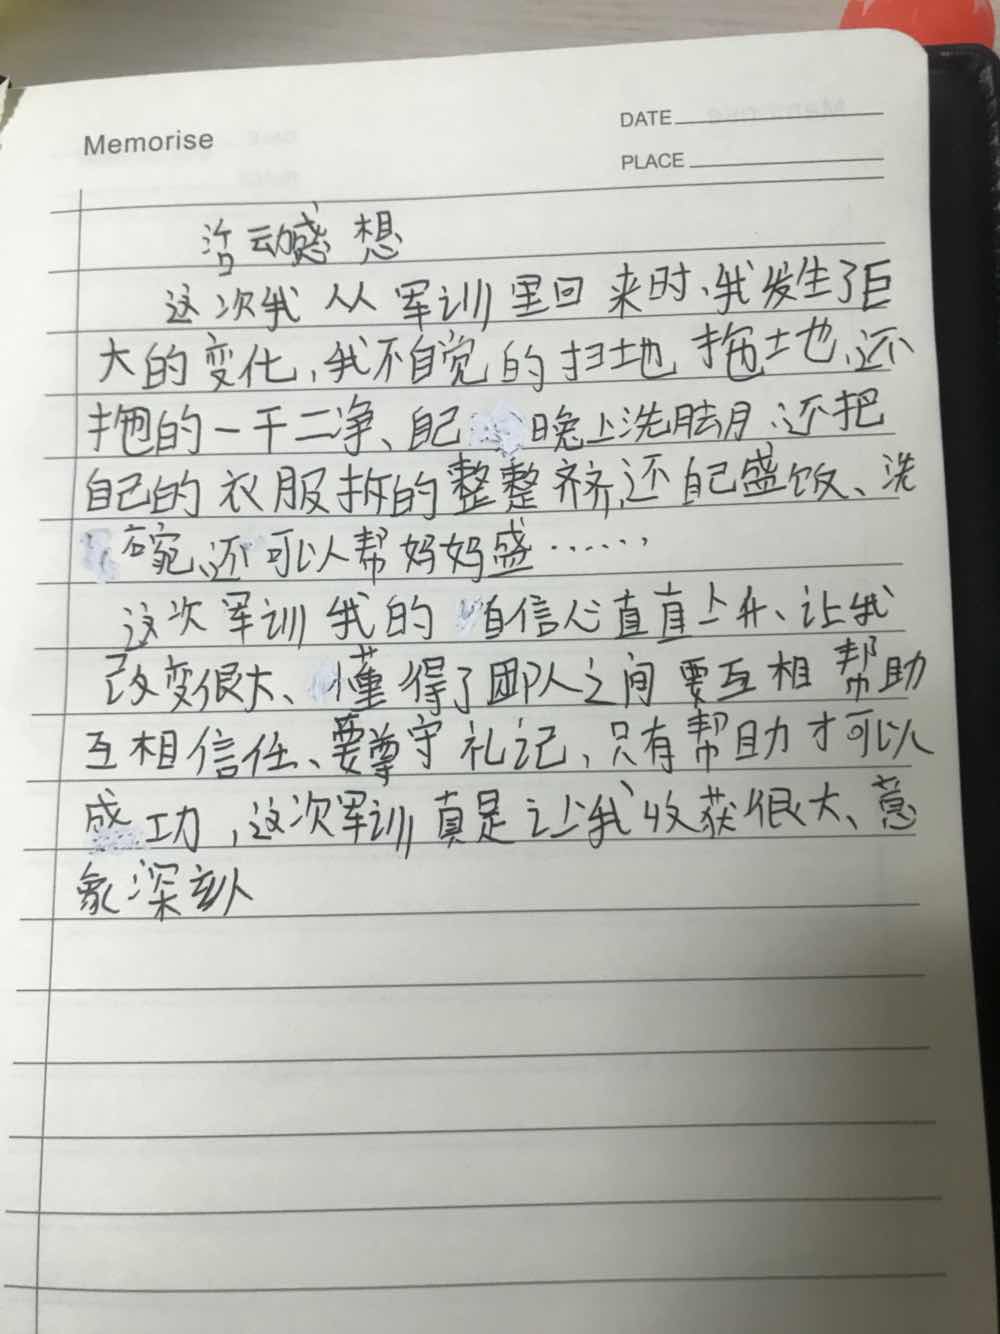 Memorise
DATE
PLACE
活动感想
这次我从军训里回来时、我发生了巨
大的变化、我不自觉的扫地、拖土也、还
拖的一干二净、自己晚上洗脚、还把
自己的衣服放的整整齐齐、还自己盛饭、洗
碗、还可以人帮妈妈盛……
这次军训我的自信心直直上升、让我
改变很大、懂得了团队人之间要互相帮助
互相信任、要尊守礼记、只有帮助才可以
成功，这次军训真是让我收获很大、意
象深刻